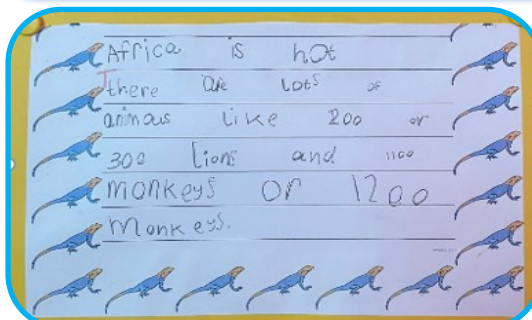 Africa is hot
There are lots of
animaus like 200 or
300 lions and 1100
monkeys or 1200
monkeys.